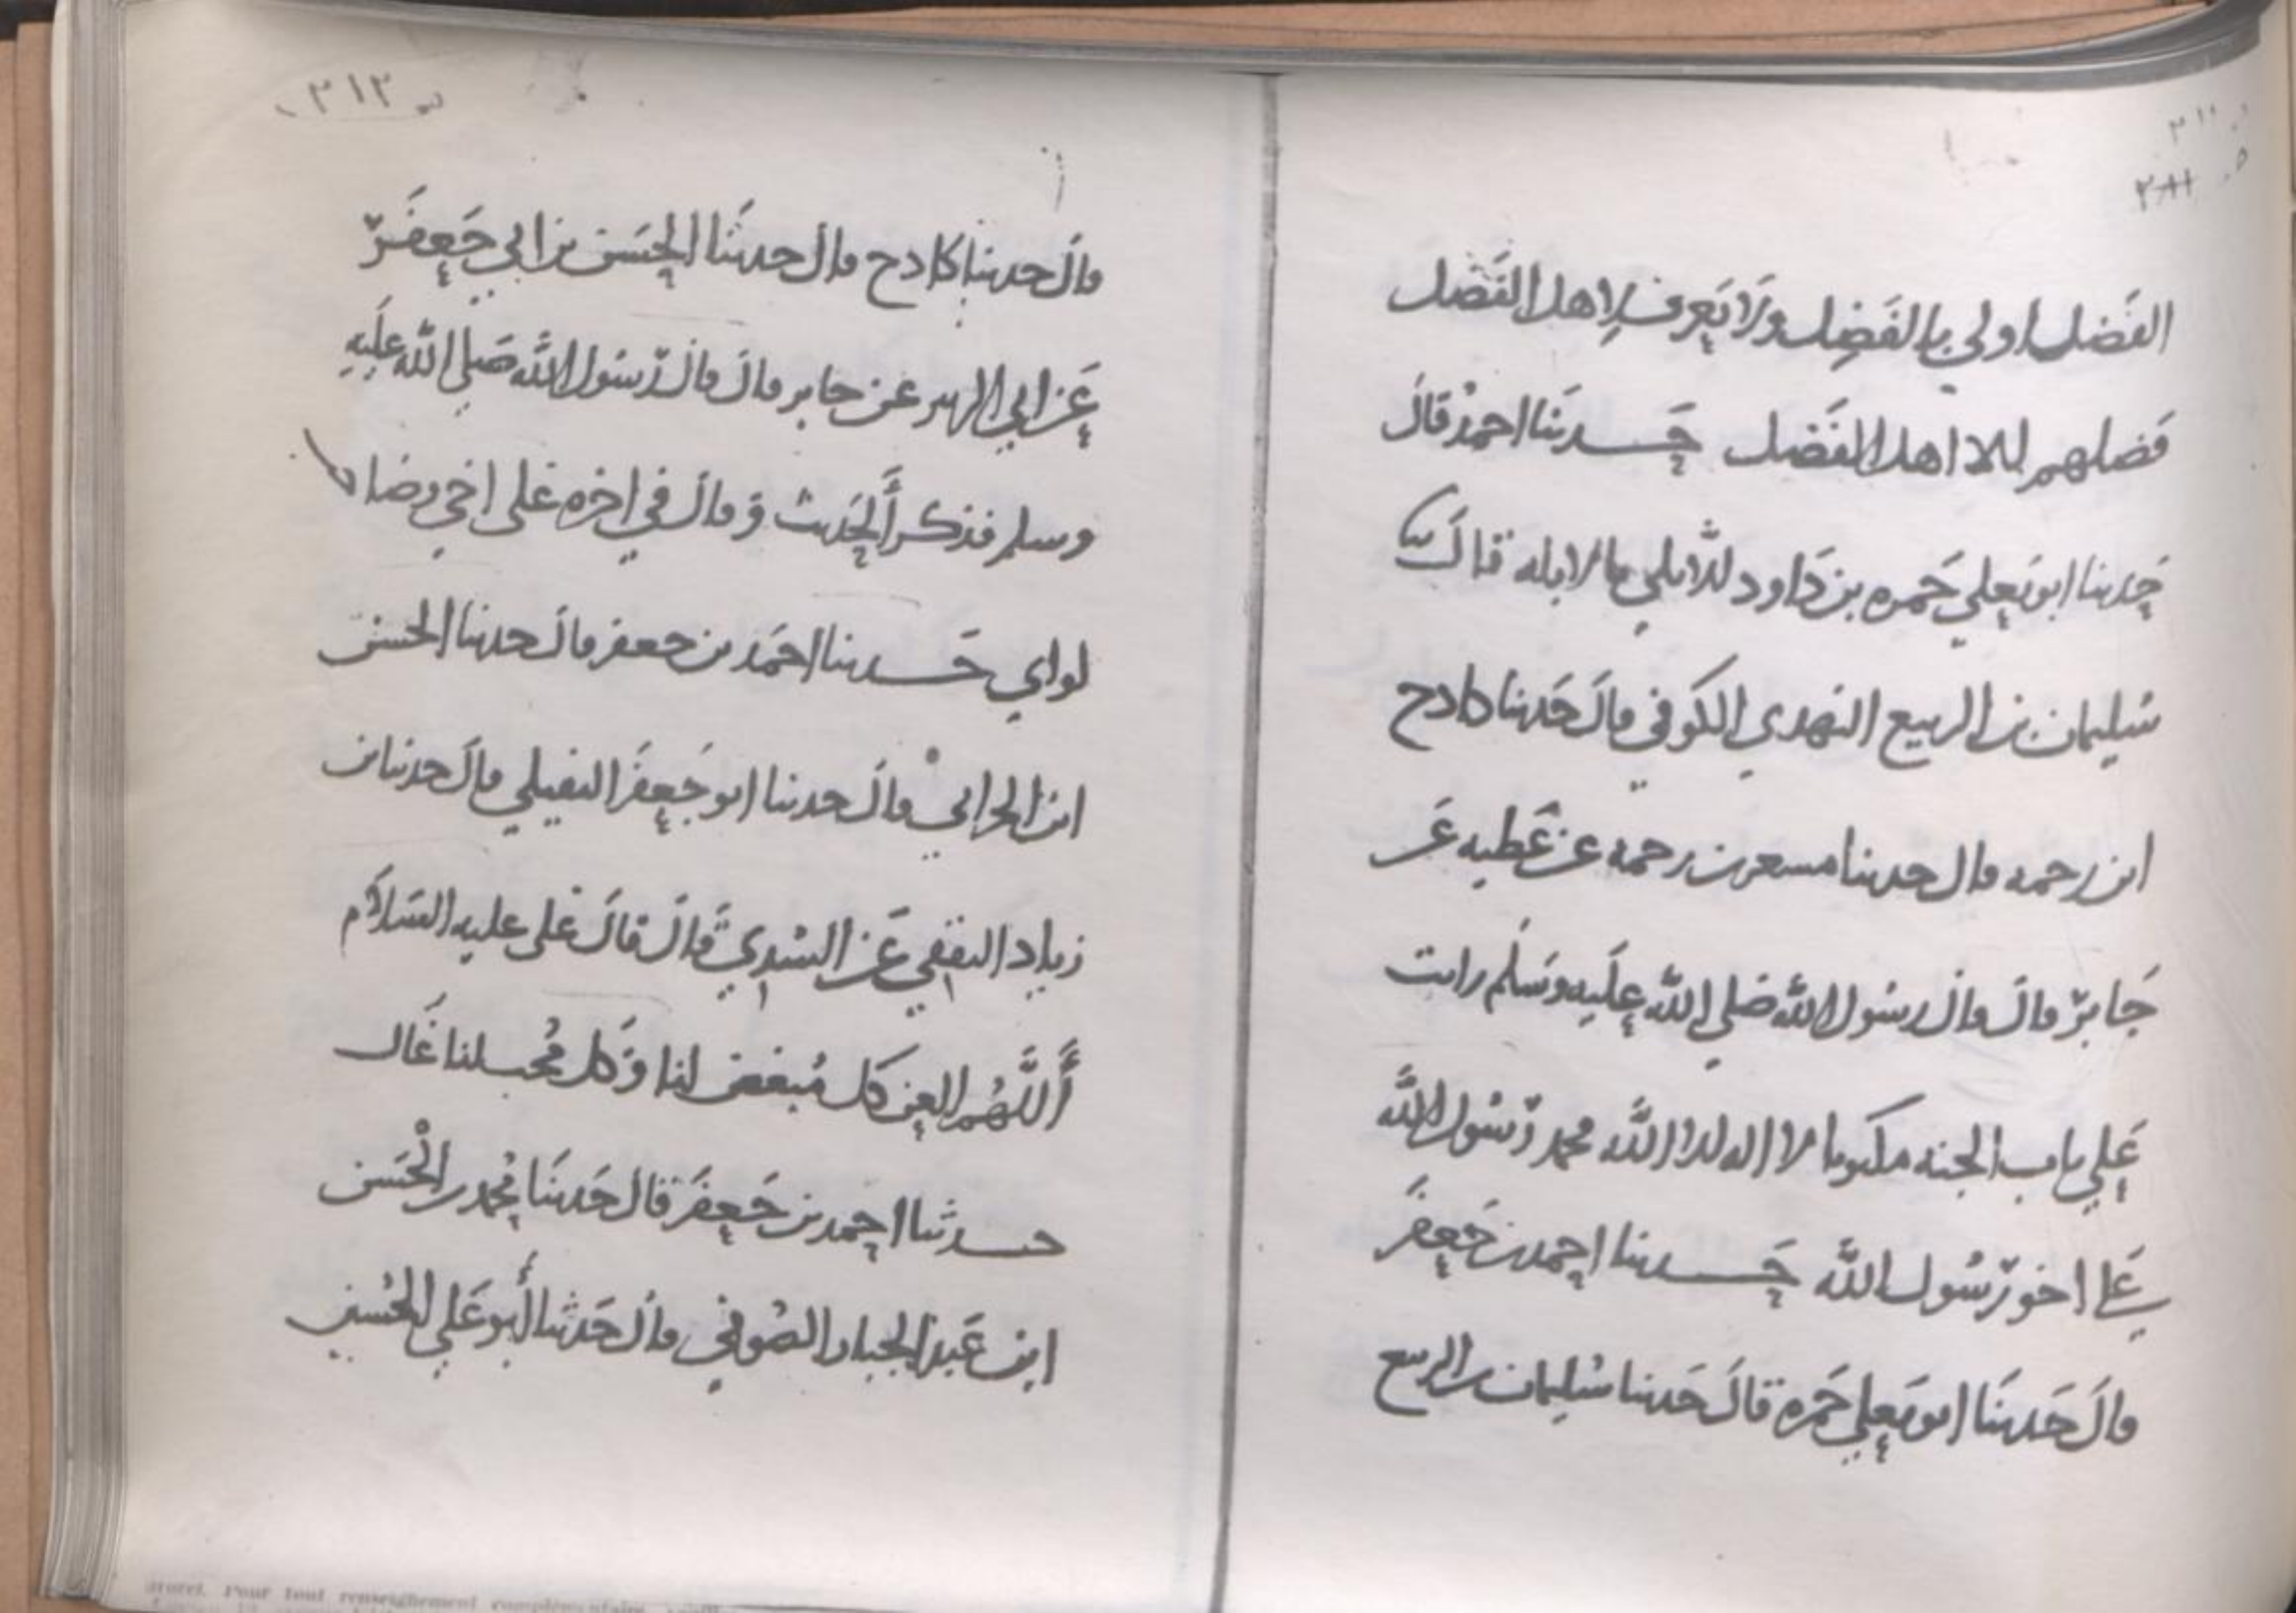 الفضل اولي بالفضل ولا يعرف لاهل الفضل
فضلهم الا اهل الفضل حدثنا احمد قال
حدثنا ابو يعلي حمزه بن داود الابلي بالابله قال ثنا
سليمان بن الربيع النهدي الكوفي قال حدثنا كادح
ابن رحمه قال حدثنا مسعر بن رحمه عن عطيه عن
جابر قال قال رسول الله صلي الله عليه وسلم رايت
علي باب الجنه مكتوبا لا اله الا الله محمد رسول الله
علي اخو رسول الله حدثنا احمد بن جعفر
قال حدثنا ابو يعلي حمزه قال حدثنا سليمان بن الربيع
٣١٢
قال حدثنا كادح قال حدثنا الحسن بن ابي جعفر
عن ابي الزبير عن جابر قال قال رسول الله صلي الله عليه
وسلم فذكر الحديث وقال في اخره علي اخي وصاحب
لواي حدثنا احمد بن جعفر قال حدثنا الحسن
ابن الحراني قال حدثنا ابو جعفر النفيلي قال حدثنا بن
زياد الثقفي عن السدي قال قال علي عليه السلام
أللهم العن كل مبغض لنا وكل محب لنا غال
حدثنا احمد بن جعفر قال حدثنا محمد بن الحسن
ابن عبد الجبار الصوفي قال حدثنا أبو علي الحسين
Pour tout renseignement complémentaire